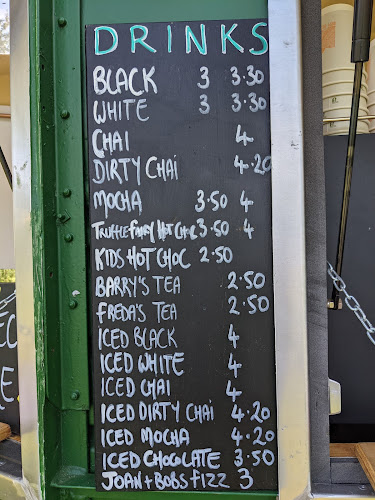 DRINKS
BLACK 3 3.30
WHITE 3 3.30
CHAI 4
DIRTY CHAI 4.20
MOCHA 3.50 4
TRUFFLE FAIRY HOT CHOC 3.50 4
KIDS HOT CHOC 2.50
BARRY'S TEA 2.50
FREDA'S TEA 2.50
ICED BLACK 4
ICED WHITE 4
ICED CHAI 4
ICED DIRTY CHAI 4.20
ICED MOCHA 4.20
ICED CHOCOLATE 3.50
JOAN + BOBS FIZZ 3